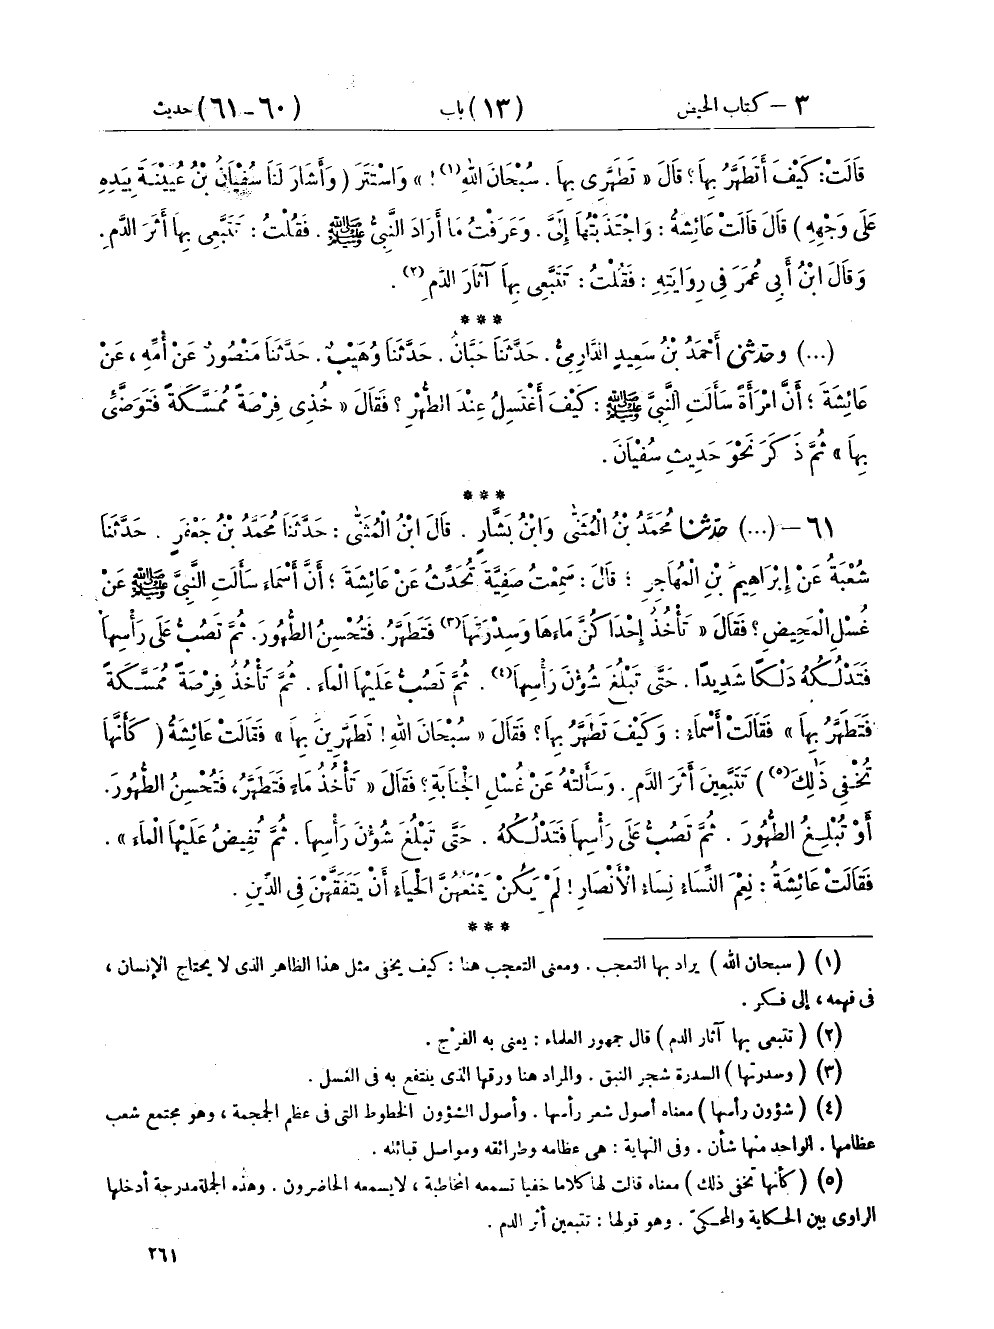 ٣ – كتاب الحيض (١٣) باب (٦٠–٦١) حديث
قَالَتْ: كَيْفَ أَتَطَهَّرُ بِهَا؟ قَالَ « تَطَهَّرِى بِهَا . سُبْحَانَ اللهِ(١)! » وَاسْتَتَرَ ( وَأَشَارَ لَنَا سُفْيَانُ بْنُ عُيَيْنَةَ بِيَدِهِ
عَلَى وَجْهِهِ ) قَالَ قَالَتْ عَائِشَةُ : وَاجْتَذَبْتُهَا إِلَىَّ . وَعَرَفْتُ مَا أَرَادَ النَّبِىُّ ﷺ . فَقُلْتُ : تَتَبَّعِى بِهَا أَثَرَ الدَّمِ .
وَقَالَ ابْنُ أَبِى عُمَرَ فِى رِوَايَتِهِ : فَقُلْتُ : تَتَبَّعِى بِهَا آثَارَ الدَّمِ (٢) .
***
(...) وحدثنى أَحْمَدُ بْنُ سَعِيدٍ الدَّارِمِىُّ . حَدَّثَنَا حَبَّانُ . حَدَّثَنَا وُهَيْبٌ . حَدَّثَنَا مَنْصُورٌ عَنْ أُمِّهِ ، عَنْ
عَائِشَةَ ؛ أَنَّ امْرَأَةً سَأَلَتِ النَّبِىَّ ﷺ : كَيْفَ أَغْتَسِلُ عِنْدَ الطُّهْرِ ؟ فَقَالَ « خُذِى فِرْصَةً مُمَسَّكَةً فَتَوَضَّئِى
بِهَا » ثُمَّ ذَكَرَ نَحْوَ حَدِيثِ سُفْيَانَ .
***
٦١ – (...) حدثنا مُحَمَّدُ بْنُ الْمُثَنَّى وَابْنُ بَشَّارٍ . قَالَ ابْنُ الْمُثَنَّى : حَدَّثَنَا مُحَمَّدُ بْنُ جَعْفَرٍ . حَدَّثَنَا
شُعْبَةُ عَنْ إِبْرَاهِيمَ بْنِ الْمُهَاجِرِ ؛ قَالَ : سَمِعْتُ صَفِيَّةَ تُحَدِّثُ عَنْ عَائِشَةَ ؛ أَنَّ أَسْمَاءَ سَأَلَتِ النَّبِىَّ ﷺ عَنْ
غُسْلِ الْمَحِيضِ ؟ فَقَالَ « تَأْخُذُ إِحْدَاكُنَّ مَاءَهَا وَسِدْرَتَهَا(٣) فَتَطَهَّرُ . فَتُحْسِنُ الطُّهُورَ . ثُمَّ تَصُبُّ عَلَى رَأْسِهَا
فَتَدْلُكُهُ دَلْكًا شَدِيدًا . حَتَّى تَبْلُغَ شُؤُنَ رَأْسِهَا(٤) . ثُمَّ تَصُبُّ عَلَيْهَا الْمَاءَ . ثُمَّ تَأْخُذُ فِرْصَةً مُمَسَّكَةً
فَتَطَهَّرُ بِهَا » فَقَالَتْ أَسْمَاءُ : وَكَيْفَ تَطَهَّرُ بِهَا ؟ فَقَالَ « سُبْحَانَ اللهِ ! تَطَهَّرِينَ بِهَا » فَقَالَتْ عَائِشَةُ ( كَأَنَّهَا
تُخْفِى ذَٰلِكَ(٥) ) تَتَبَّعِينَ أَثَرَ الدَّمِ . وَسَأَلَتْهُ عَنْ غُسْلِ الْجَنَابَةِ ؟ فَقَالَ « تَأْخُذُ مَاءً فَتَطَهَّرُ ، فَتُحْسِنُ الطُّهُورَ .
أَوْ تُبْلِغُ الطُّهُورَ . ثُمَّ تَصُبُّ عَلَى رَأْسِهَا فَتَدْلُكُهُ . حَتَّى تَبْلُغَ شُؤُنَ رَأْسِهَا . ثُمَّ تُفِيضُ عَلَيْهَا الْمَاءَ » .
فَقَالَتْ عَائِشَةُ : نِعْمَ النِّسَاءُ نِسَاءُ الْأَنْصَارِ ! لَمْ يَكُنْ يَمْنَعُهُنَّ الْحَيَاءُ أَنْ يَتَفَقَّهْنَ فِى الدِّينِ .
***
(١) ( سبحان الله ) يراد بها التعجب . ومعنى التعجب هنا : كيف يخفى مثل هذا الظاهر الذى لا يحتاج الإنسان ،
فى فهمه ، إلى فكر .
(٢) ( تتبعى بها آثار الدم ) قال جمهور العلماء : يعنى به الفرْج .
(٣) ( وسدرتها ) السدرة شجر النبق . والمراد هنا ورقها الذى ينتفع به فى الغسل .
(٤) ( شؤون رأسها ) معناه أصول شعر رأسها . وأصول الشؤون الخطوط التى فى عظم الجمجمة ، وهو مجتمع شعب
عظامها . الواحد منها شأن . وفى النهاية : هى عظامه وطرائقه ومواصل قبائله .
(٥) ( كأنها تخفى ذلك ) معناه قالت لها كلاما خفيا تسمعه المخاطبة ، لا يسمعه الحاضرون . وهذه الجملة مدرجة أدخلها
الراوى بين الحكاية والمحكىّ . وهو قولها : تتبعين أثر الدم .
٢٦١